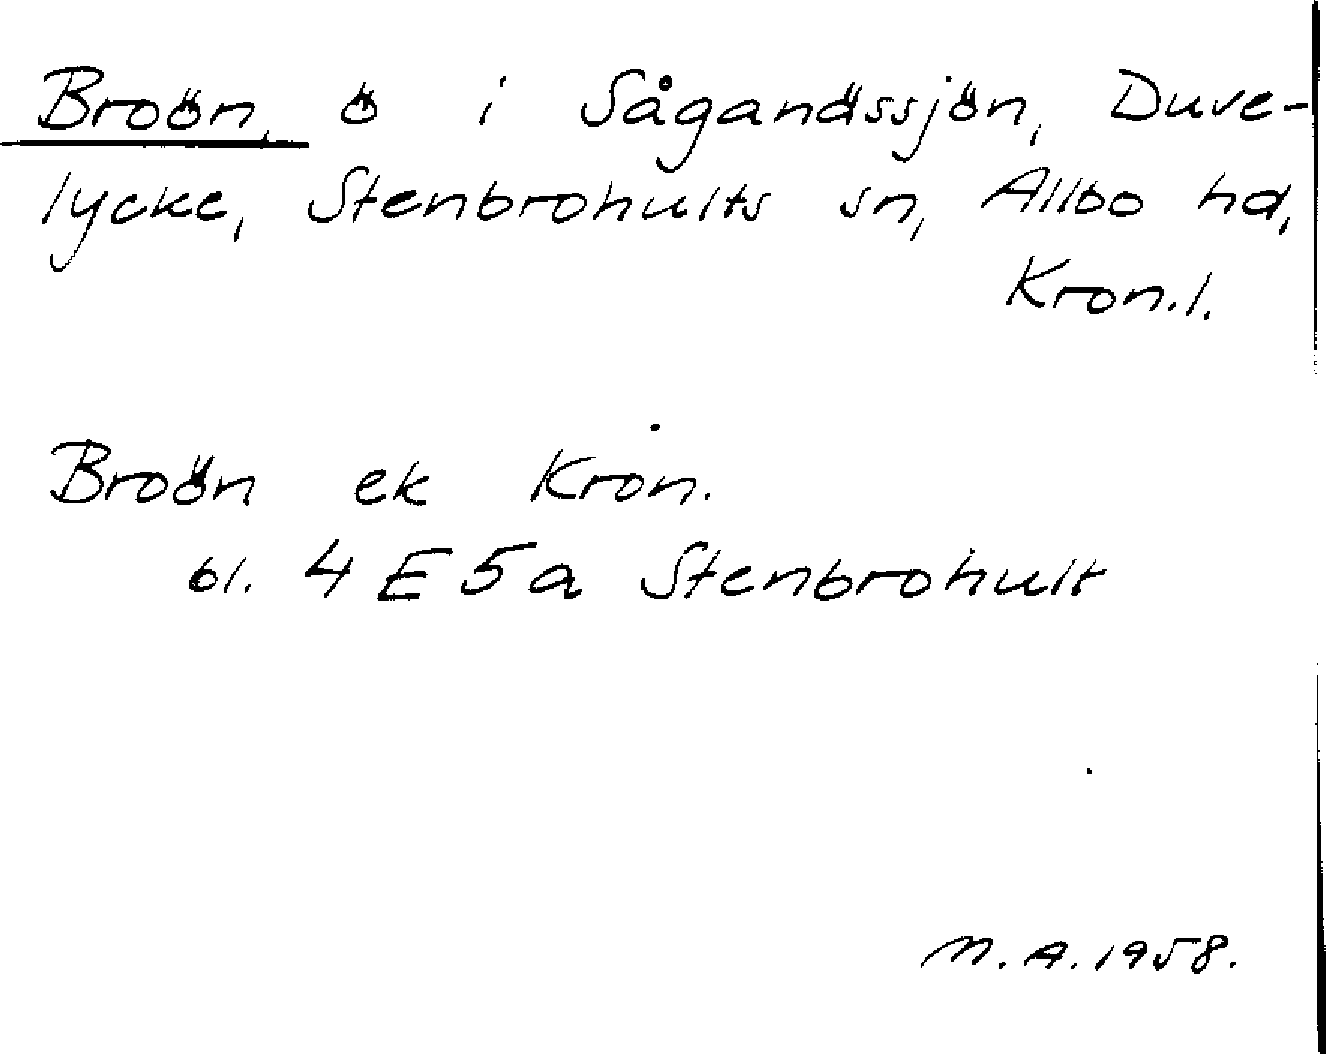 Broön, ö i Sågandässjön, Duve-
lycke, Stenbrohults sn, Allbo hd,
Kron.l.
Broön ek Kron.
bl. 4 E 5 a Stenbrohult
M.A. 1958.